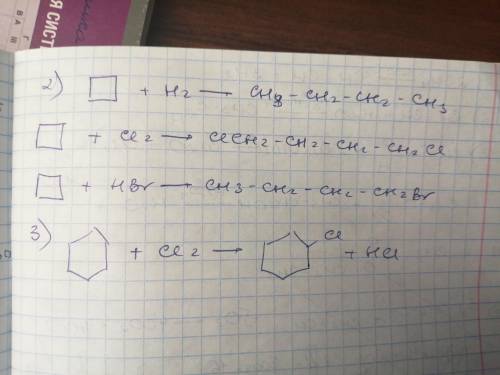 Я СИСТ
2) □ + H2 → CH3-CH2-CH2-CH3
□ + Cl2 → ClCH2-CH2-CH2-CH2Cl
□ + HBr → CH3-CH2-CH2-CH2Br
3) ⬡ + Cl2 → ⬡ Cl + HCl